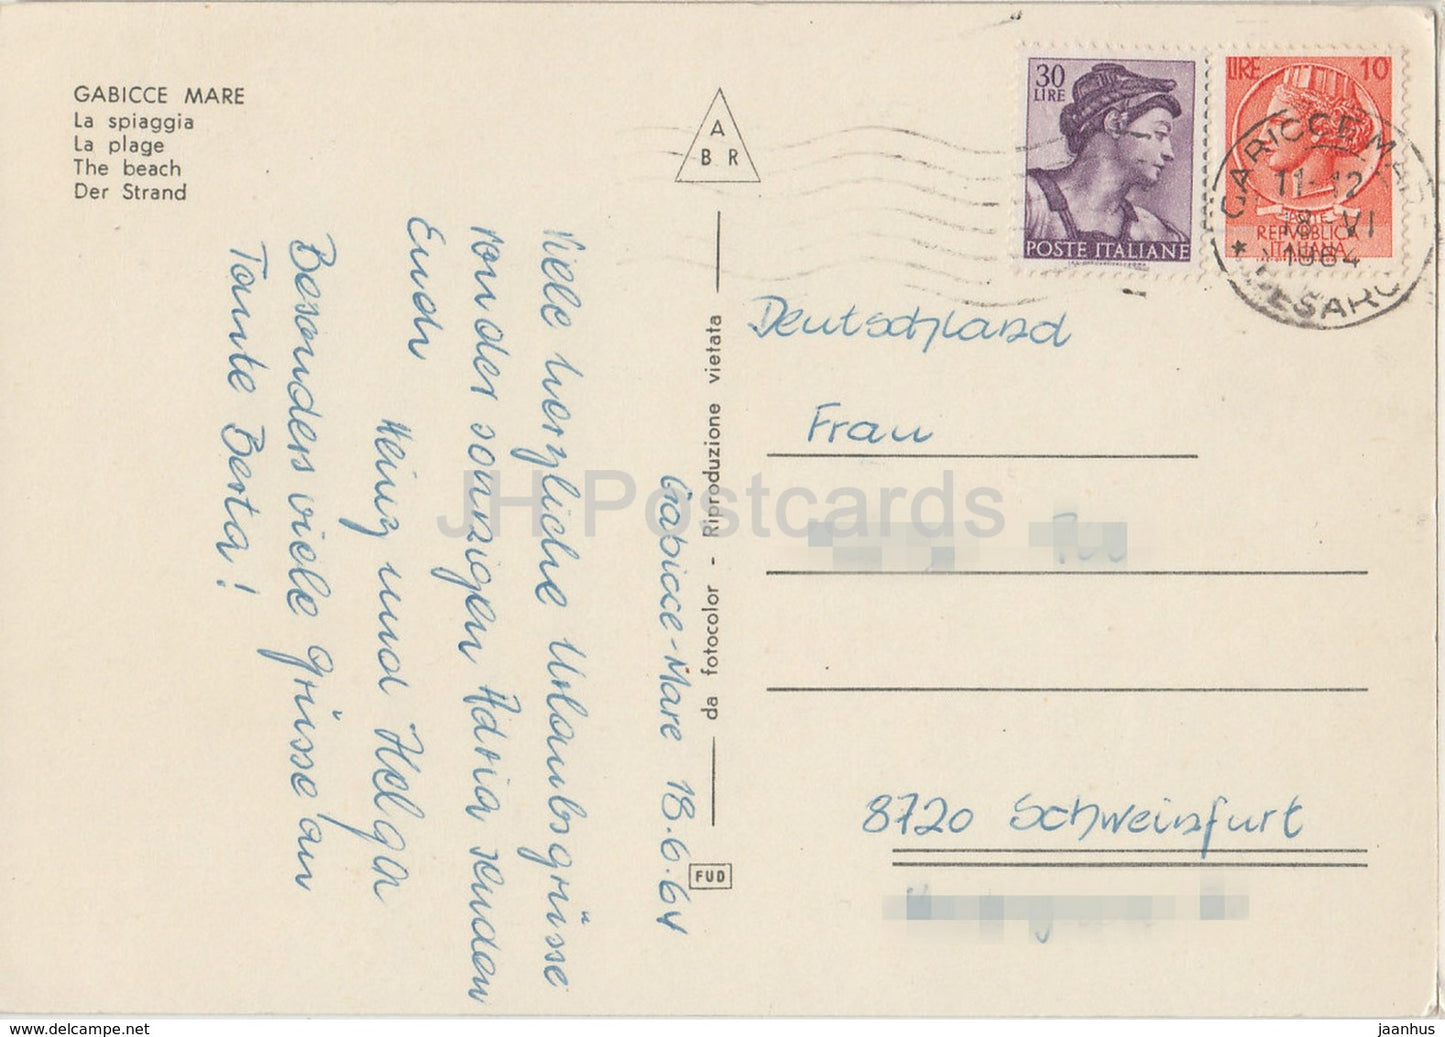 GABICCE MARE
La spiaggia
La plage
The beach
Der Strand
A
B R
30
LIRE
POSTE ITALIANE
LIRE 10
POSTE
REPVBBLICA
ITALIANA
GABICCE MARE
11-12
18 VI
1964
* PESARO
Gabicce-Mare 18.6.64
Viele herzliche Urlaubsgrüsse
von der sonnigen Adria senden
Euch
Heinz und Helga
Besonders viele Grüsse an
Tante Berta!
da fotocolor - Riproduzione vietata
FUD
Deutschland
Frau
8720 Schweinfurt
JH Postcards
www.delcampe.net
jaanhus